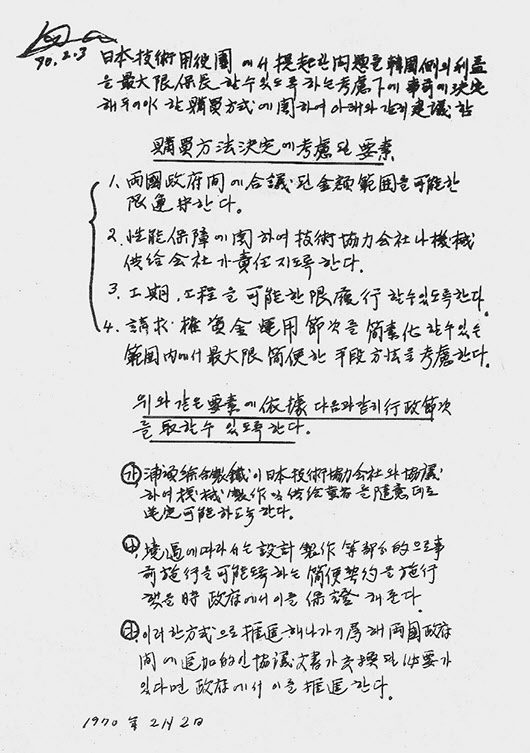 70.2.3
日本技術用役團에서 提起한 內題를 韓國側의 利益
을 最大限保長할수있도록하는考慮下에 事前에決定
해두어야할購買方式에関하여아래와같이建議함
購買方法決定에考慮될要素
1. 両國政府間에合議된金額範囲을可能한
限遵守한다。
2. 性能保障에関하여技術協力会社나機械
供給会社가責任지도록한다.
3. 工期,工程을可能한限履行할수있도록한다.
4. 請求權資金運用節次를簡素化할수있는
範囲内에서最大限簡便한手段方法을考慮한다.
위와같은要素에依據다음과같이行政節次
를取할수있도록한다.
㉮ 浦項綜合製鐵이日本技術協力会社와協議
하여機械製作및供給業者를隨意대로
選定可能하도록한다。
㉯ 境遇에따라서는設計製作等部分的으로事
前施行을可能토록하는簡便契約을施行
했을時政府에서이를保證해준다
㉰ 이러한方式으로推進해나가기爲해両國政府
間에追加的인協議文書가交換될必要가
있다면政府에서이를推進한다.
1970年2月2日